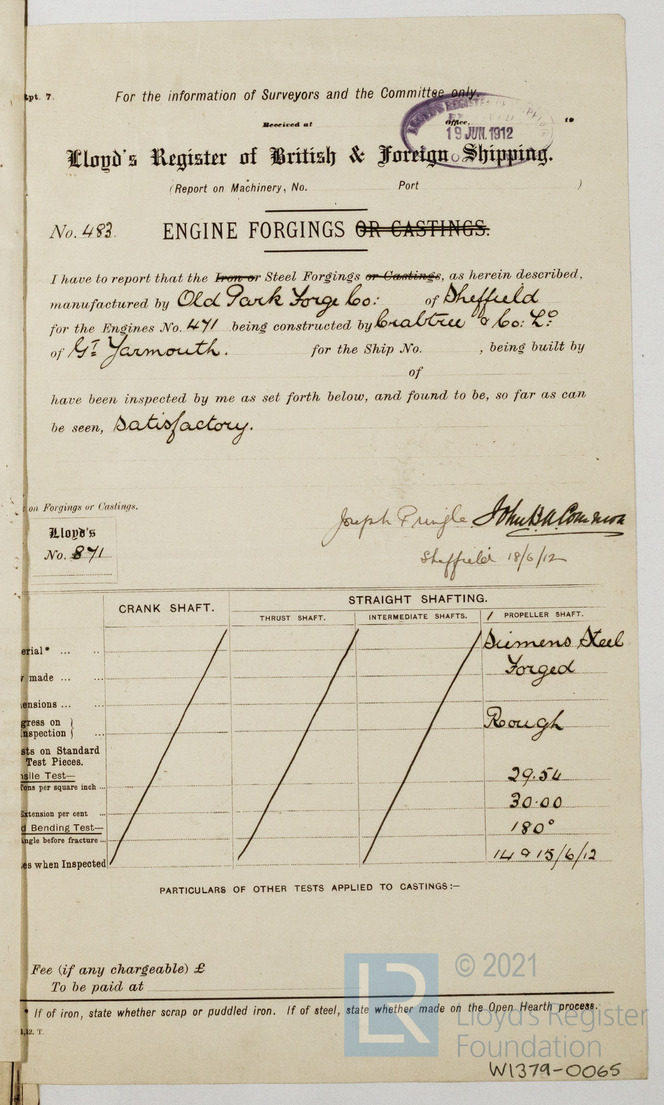 pt. 7.
For the information of Surveyors and the Committee only.
Received at Office, 19
19 JUN. 1912
Lloyd's Register of British & Foreign Shipping.
(Report on Machinery, No. Port )
No. 483.
ENGINE FORGINGS OR CASTINGS.
I have to report that the Iron or Steel Forgings or Castings, as herein described,
manufactured by Old Park Forge Co: of Sheffield
for the Engines No. 471 being constructed by Crabtree & Co: Ld
of Gt Yarmouth. for the Ship No. , being built by
of
have been inspected by me as set forth below, and found to be, so far as can
be seen, Satisfactory.
on Forgings or Castings.
Lloyd's
No. 871
Joseph Pringle John B.A. Common
Sheffield 18/6/12
CRANK SHAFT.
STRAIGHT SHAFTING.
THRUST SHAFT. INTERMEDIATE SHAFTS. 1 PROPELLER SHAFT.
erial* ... .. Siemens Steel
made ... ... Forged
ensions ... ..
gress on
nspection ... Rough
sts on Standard
Test Pieces.
sile Test—
Tons per square inch ... 29.54
Extension per cent ... 30.00
d Bending Test— 180°
ngle before fracture ...
es when Inspected 14 & 15/6/12
PARTICULARS OF OTHER TESTS APPLIED TO CASTINGS:—
Fee (if any chargeable) £
To be paid at
* If of iron, state whether scrap or puddled iron. If of steel, state whether made on the Open Hearth process.
,12. T.
LR
© 2021
Lloyd's Register
Foundation
W1379-0065